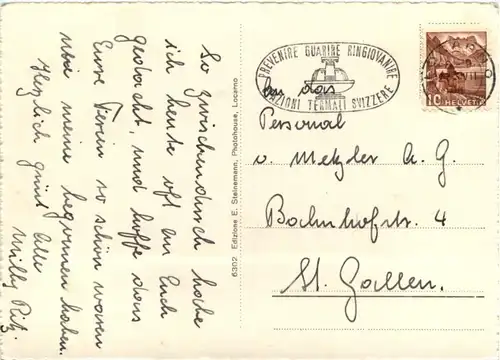 So zwischendurch habe
ich heute oft an Euch
gedacht, und hoffe dass
Eure Ferien so schön waren
wie meine begonnen haben.
Herzlich grüsst Alle
Milly
6302 Edizione E. Steinemann, Photohouse, Locarno
PREVENIRE GUARIRE RINGIOVANIRE
STAZIONI TERMALI SVIZZERE
10 HELVETIA
An das
Personal
v. Metzler A. G.
Bahnhofstr. 4
St. Gallen.